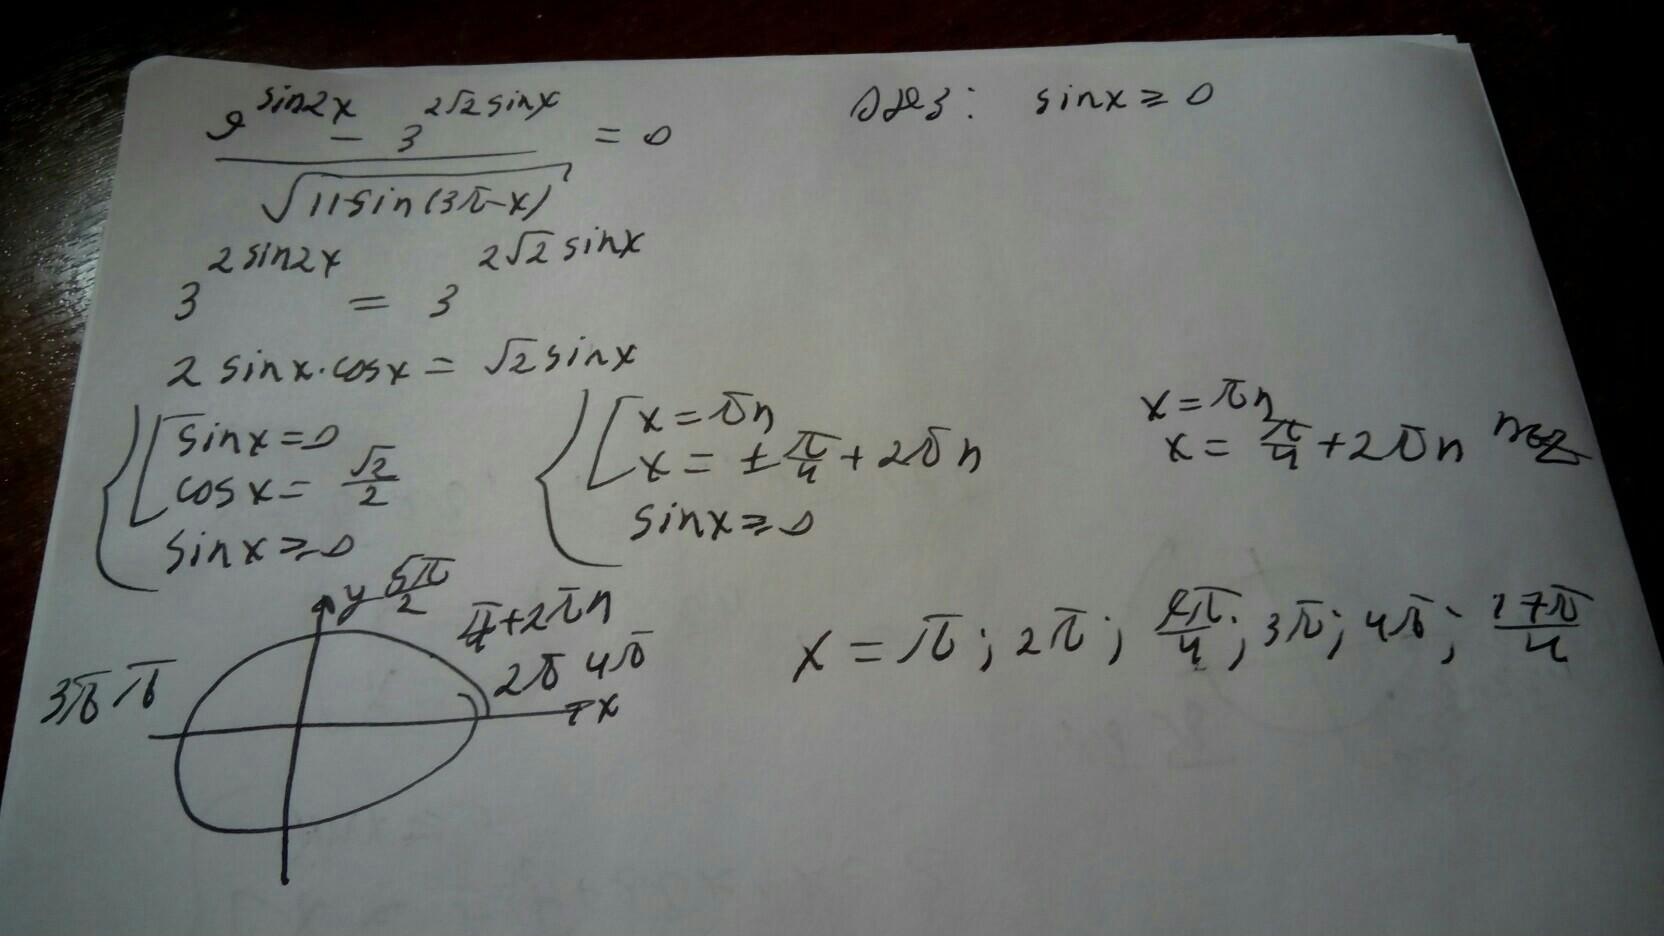 9^{sin2x} - 3^{2√2 sinx} / √(11sin(3π-x)) = 0
ОДЗ: sinx ≥ 0
3^{2sin2x} = 3^{2√2 sinx}
2 sinx·cosx = √2 sinx
{ [ sinx=0
cosx = √2/2
sinx ≥ 0
{ [ x = πn
x = ± π/4 + 2πn
sinx ≥ 0
x = πn
x = π/4 + 2πn n∈Z
y 5π/2
π/4+2πn
2π 4π
3π π
x
x = π; 2π; 3π; 4π; 17π/4